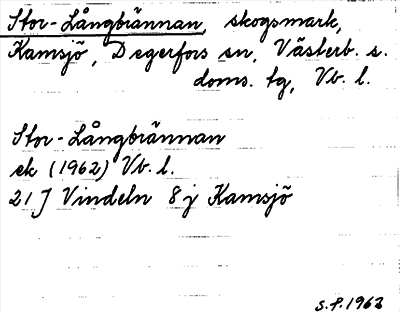 Stor-Långbrännan, skogsmark,
Kamsjö, Degerfors sn, Västerb. s.
doms. tg, Vb. l.
Stor-Långbrännan
ek (1962) Vb. l.
21 J Vindeln 8j Kamsjö
S.P. 1963